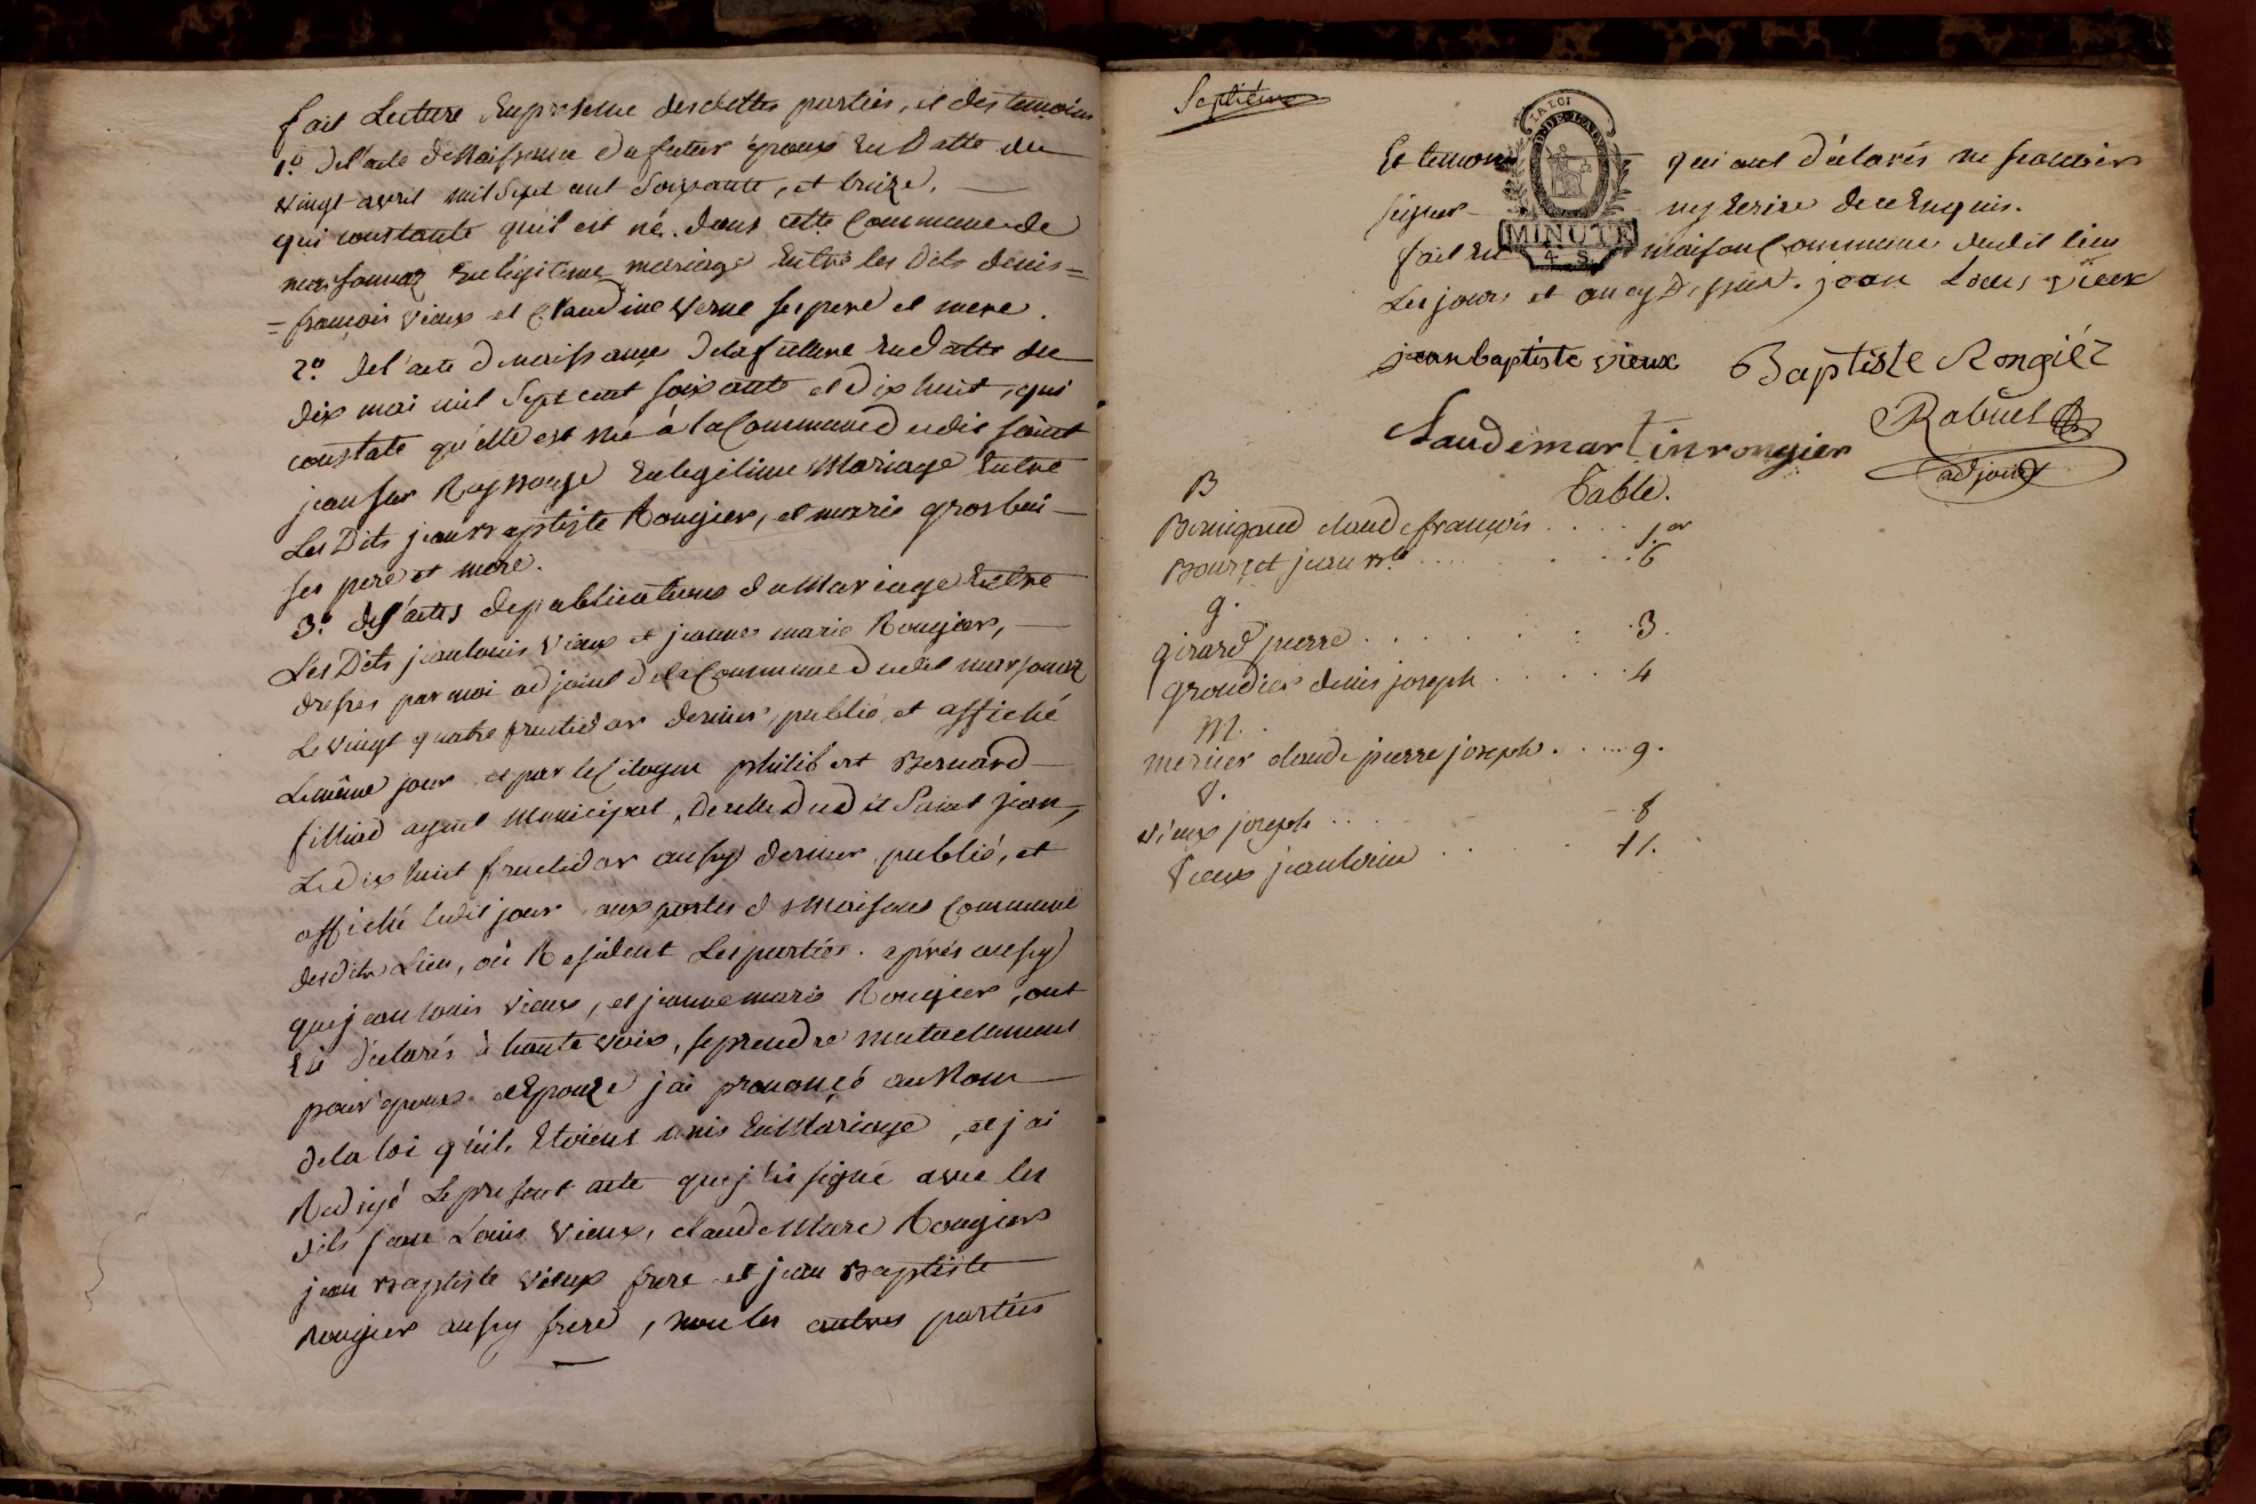 fait Lecture Enpresence desdittes parties, et des temoins
1.º Del'acte deNaissance du futur époux En Datte du
vingt avril mil Sept cent Soixante, et treize,
qui constante qu'il est né. dans cette Commune de
marsonnaz En légitime mariage Entre les Dits denis=
=françois vieux et Claudine verne ses pere et mere.
2.º Del'acte de naissance Dela future En datte du
dix mai mil Sept cent soixante et dix huit, qui
constate qu'elle est née à la Commune dudit saint
jean sur Rayssouze En legitime Mariage Entre
Les Dits jean Baptiste Rougier, et marie grosbui
ses pere et mere.
3.º des actes de publications du Mariage Entre
Les Dits jean louis vieux et jeanne marie Rougier,
dressés par moi adjoint dela Commune dudit marsonnaz
Le vingt quatre fructidor dernier, publié, et affiché
Le même jour et par le Citoyen philibert Bernard
filliod agent Municipal, de celle dudit Saint jean,
Le dix huit fructidor aussy dernier, publié, et
affiché ledit jour aux portes des Maisons Commune
desdits Lieu, où Resident Les parties. après aussy
que jean louis vieux, et jeanne marie Rougier, ont
Eü déclarés à haute voix, se prendre mutuellement
pour époux et Epouze j'ai prononcé au Nom
de la loi qu'ils Etoient unis En Mariage, et j'ai
Redigé Le present acte que j'ai signé avec les
dits jean Louis vieux, claude Marc Rougier
jean Baptiste vieux frere et jean Baptiste
Rougier aussy frere, non les autres parties
Septième
LA LOI
Et temoins qui ont déclarés ne scavoir
signer ny Ecrire de ce Enquis.
MINUTE
4. S.
fait En maison Commune dudit lieu
Les jours et an cy Dessus. jean Louis vieux
jean baptiste vieux Baptiste Rongiéz
Claudemartinrongier Rabuel
adjoint
Table.
B
Bernigaud claude françois . . . . 1.er
Bourcet jean B.te . . . . . . 6
g.
girard pierre . . . . . . . 3.
groudier denis joseph . . . . . 4
M.
mercier claude pierre joseph . . . . . 9.
V.
vieux joseph . . . 8
Vieux jean louis . . . . 11.